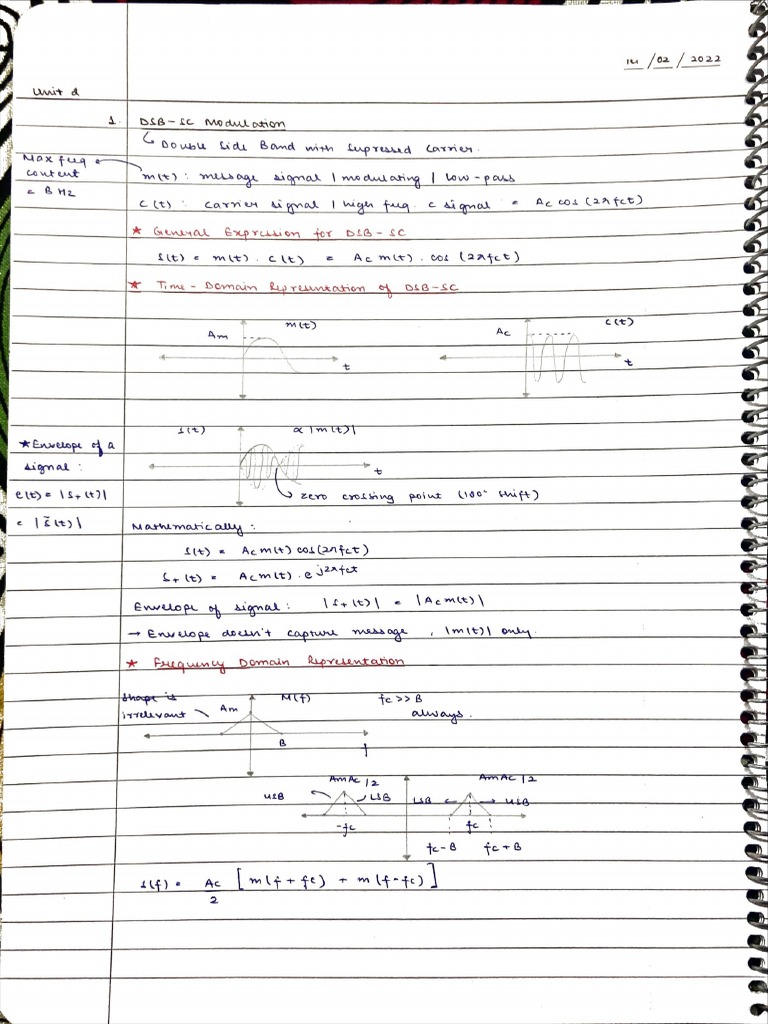 14 / 02 / 2022
Unit 2
1. DSB-SC Modulation
↳ Double Side Band with Supressed Carrier.
Max freq content = B Hz
m(t) : message signal | modulating | low-pass
c(t) : carrier signal | high freq. c signal = Ac cos (2πfct)
* General Expression for DSB-SC
s(t) = m(t) . c(t) = Ac m(t) . cos (2πfct)
* Time-Domain Representation of DSB-SC
Am m(t) t
Ac c(t) t
s(t) ∝ |m(t)| t
zero crossing point (180° shift)
* Envelope of a
signal :
e(t) = |s+(t)|
= |s̃(t)|
Mathematically :
s(t) = Ac m(t) cos(2πfct)
s+(t) = Ac m(t) . e^j2πfct
Envelope of signal : |s+(t)| = |Ac m(t)|
→ Envelope doesn't capture message , |m(t)| only.
* Frequency Domain Representation
Shape is
irrelevant
Am M(f) B f
fc >> B
always.
AmAc/2 AmAc/2
USB LSB LSB USB
-fc fc
fc-B fc+B
s(f) = Ac/2 [m(f + fc) + m(f - fc)]